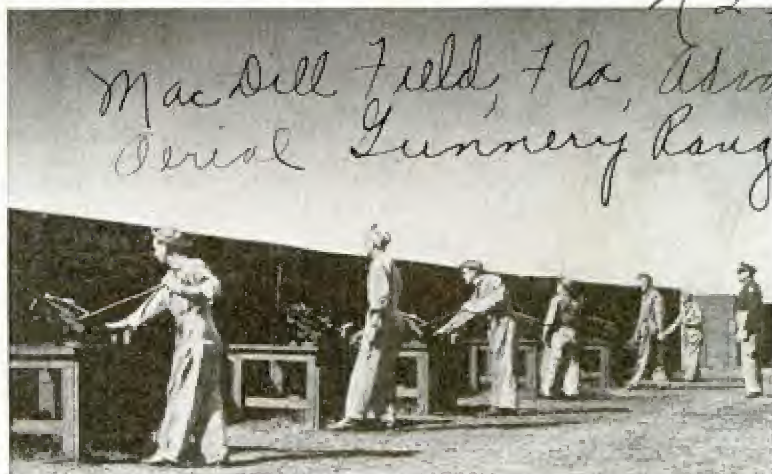 MacDill Field, Fla, Adva
Aerial Gunnery Rang